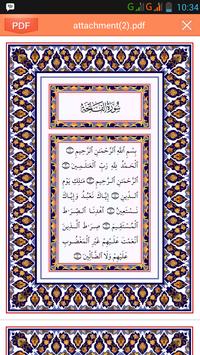 10:34
PDF
attachment(2).pdf
سُورَةُ الْفَاتِحَةِ
بِسْمِ ٱللَّهِ ٱلرَّحْمَٰنِ ٱلرَّحِيمِ ۝
ٱلْحَمْدُ لِلَّهِ رَبِّ ٱلْعَٰلَمِينَ ۝
ٱلرَّحْمَٰنِ ٱلرَّحِيمِ ۝ مَٰلِكِ يَوْمِ
ٱلدِّينِ ۝ إِيَّاكَ نَعْبُدُ وَإِيَّاكَ
نَسْتَعِينُ ۝ ٱهْدِنَا ٱلصِّرَٰطَ
ٱلْمُسْتَقِيمَ ۝ صِرَٰطَ ٱلَّذِينَ
أَنْعَمْتَ عَلَيْهِمْ غَيْرِ ٱلْمَغْضُوبِ
عَلَيْهِمْ وَلَا ٱلضَّآلِّينَ ۝